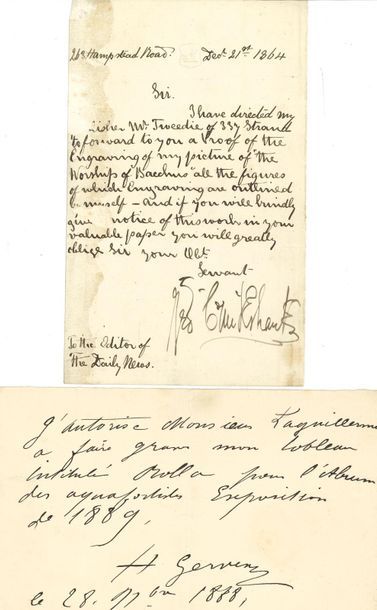 263 Hampstead Road. Decr. 21st 1864
Sir.
I have directed my
lisher Mr. Tweedie of 337 Strand
to forward to you a Proof of the
Engraving of my picture of "the
Worship of Bacchus" all the figures
of which Engraving are outlined
by myself – And if you will kindly
give notice of this work in your
valuable paper you will greatly
oblige Sir your Obt.
Servant
Geo Cruikshank
To the Editor of
The Daily News.
J'autorise Monsieur Laguillermie
a faire graver mon tableau
intitulé Rolla pour l'Album
des aquafortistes Exposition
de 1889.
H Gervex
le 28. 9bre 1888,